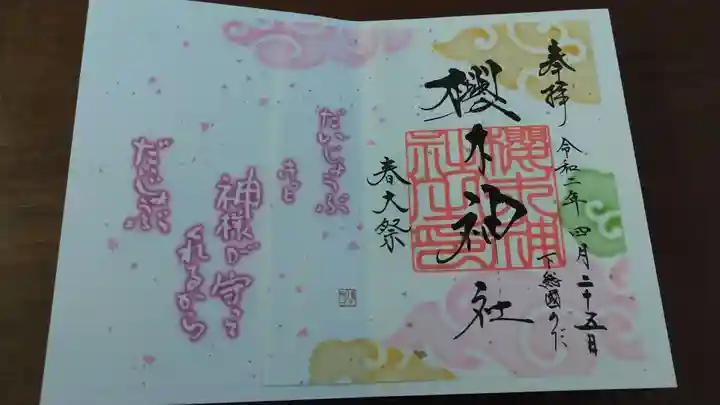 奉拝
令和二年 四月二十五日
下総國のだ
櫻木神社
櫻木神社之印
春大祭
だいじょうぶ
きっと
神様が守って
くれるから
だいじょぶ